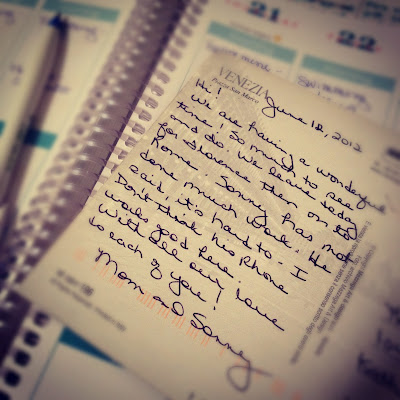 21
22
VENEZIA
Piazza San Marco
June 12, 2012
Hi!
We are having a wonderful
time! So much to see
and do. We leave today
for Florence then on to
Rome. Sonny has not
done much work. He
said it's hard to - I
Don't think his phone
works good here.
With all our love
to each of you!
Mom and Sonny